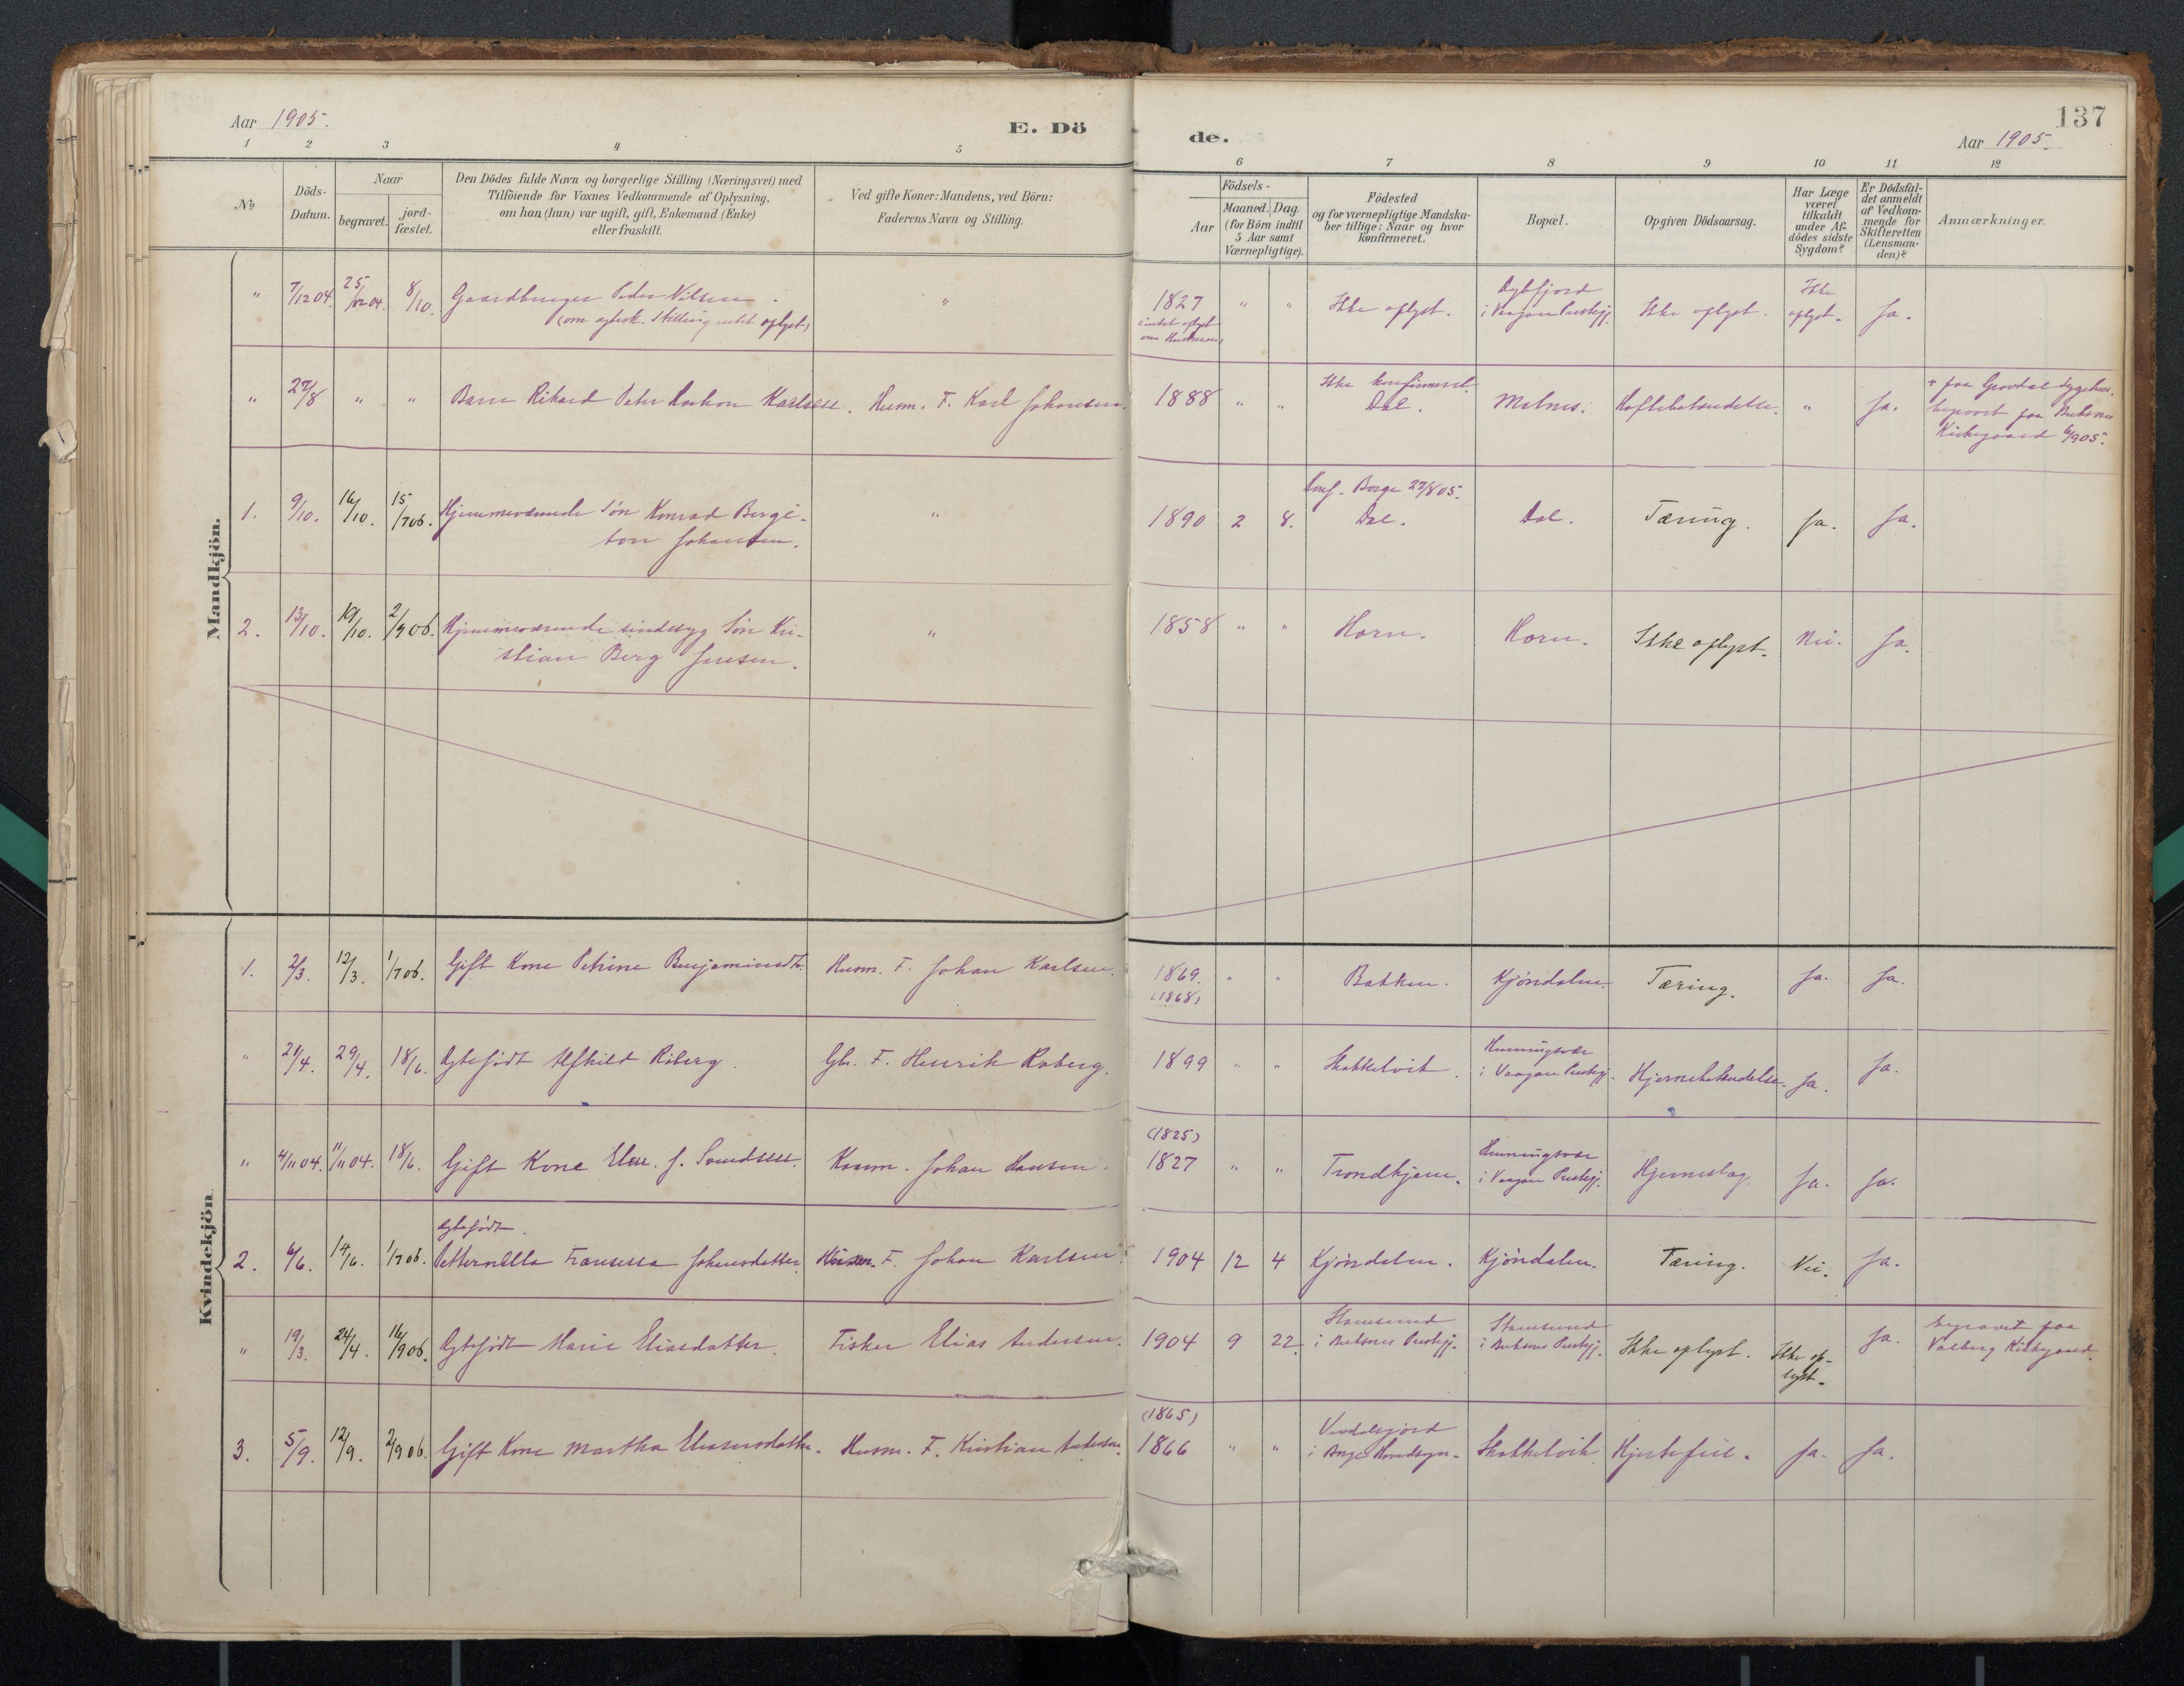 137
Aar 1905.
E. Dö
de.
Aar 1905.
1 2 3 4 5 6 7 8 9 10 11 12
No.
Döds-
Datum.
Naar
begravet.
jord-
fæstet.
Den Dödes fulde Navn og borgerlige Stilling (Næringsvei) med
Tilföiende for Voxnes Vedkommende af Oplysning,
om han (hun) var ugift, gift, Enkemand (Enke)
eller fraskilt.
Ved gifte Koner: Mandens, ved Börn:
Faderens Navn og Stilling.
Födsels-
Aar
Maaned. Dag.
(for Börn indtil
5 Aar samt
Værnepligtige).
Födested
og for værnepligtige Mandska-
ber tillige: Naar og hvor
konfirmeret.
Bopæl.
Opgiven Dödsaarsag.
Har Læge
været
tilkaldt
under Af-
dödes sidste
Sygdom?
Er Dödsfal-
det anmeldt
af Vedkom-
mende for
Skifteretten
(Lensman-
den)?
Anmærkninger.
Mandkjön.
" 7/12 04. 25/12 04. 8/10. Gaardbruger Peder Nilsen. " 1827 " " Ikke oplyst. Ikke oplyst. Ja.
(om ægtesk. Stilling intet oplyst)
(intet oplyst
Dybfjord
i Vaagan Prestgj.
Ikke
oplyst.
" 27/8 " " Barn Rikard Peder Hakon Karlsen. Husm. F. Karl Johansen. 1888 " " Dal. Malnes. Hoftebetændelse. " Ja.
Ikke konfirmeret.
+ paa Gravdal Sygehus.
begravet paa Buksnes
Kirkegaard 6/9 05.
1. 9/10. 16/10. 15/7 06. Hjemmeværende Søn Konrad Bergi- " 1890 2 8. Dal. Dal. Tæring. Ja. Ja.
ton Johansen.
Konf. Borge 27/8 05.
2. 13/10. 19/10. 2/9 06. Hjemmeværende sindssyg Søn Kri- " 1858 " " Horn. Horn. Ikke oplyst. Nei. Ja.
stian Berg Jensen.
Kvindekjön.
1. 2/3. 12/3. 1/7 06. Gift Kone Petrine Benjaminsdtr. Husm. F. Johan Karlsen. 1869. " " Bakken. Kjöndalen. Tæring. Ja. Ja.
(1868)
" 21/4. 29/4. 18/6. Ægtefødt Alfhild Roberg. Gbr. F. Henrik Roberg. 1899 " " Skokkelvik. Hjernebetændelse. Ja. Ja.
Henningsvær
i Vaagan Prestgj.
" 4/11 04. 11/11 04. 18/6. Gift Kone Elen. J. Svendsen. Kaarm. Johan Hansen. 1827 " " Trondhjem. Hjerneslag. Ja. Ja.
(1825)
Henningsvær
i Vaagan Prestgj.
Ægtefødt.
2. 6/6. 14/6. 1/7 06. Petternella Fransessa Johansdatter. Husm. F. Johan Karlsen. 1904 12 4 Kjöndalen. Kjöndalen. Tæring. Nei. Ja.
" 19/3. 24/4. 16/9 06. Ægtefødt Marie Eliasdatter. Fisker Elias Andersen. 1904 9 22. Ikke oplyst. Ja.
Stamsund
i Buksnes Prestgj.
Stamsund
i Buksnes Prestgj.
Ikke op-
lyst.
begravet paa
Valberg Kirkegaard.
3. 5/9. 12/9. 2/9 06. Gift Kone Martha Eliasensdatter. Husm. F. Kristian Andersen. 1866 " " Skokkelvik. Hjertefeil. Ja. Ja.
(1865)
i Borge Hovedsogn.